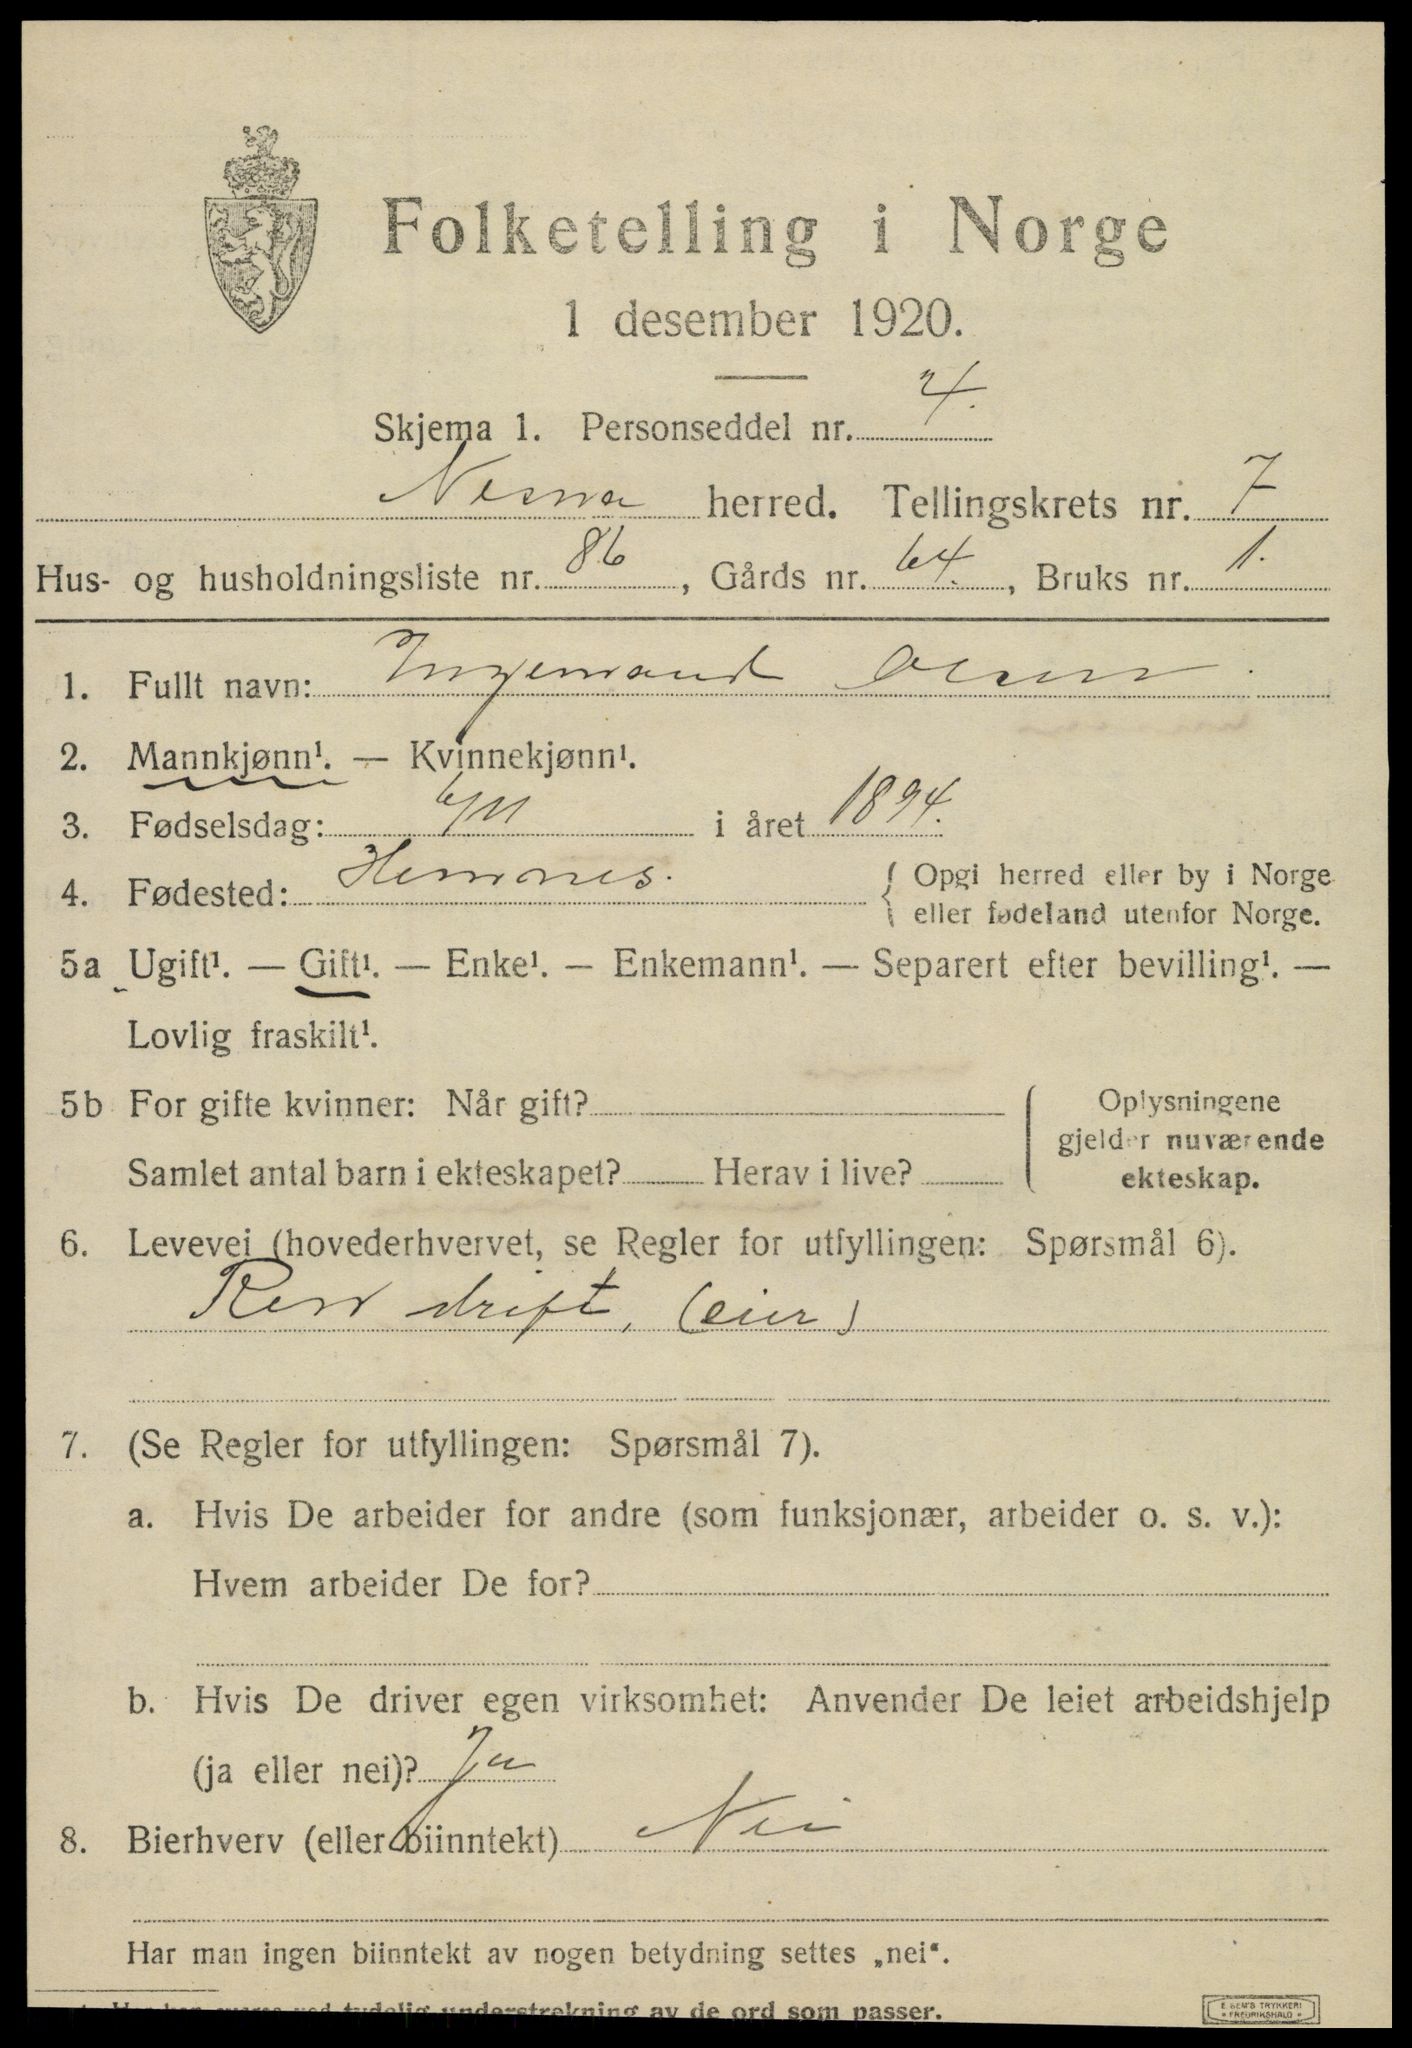 Folketelling i Norge
1 desember 1920.
Skjema 1. Personseddel nr. 4.
Nesna herred. Tellingskrets nr. 7
Hus- og husholdningsliste nr. 86, Gårds nr. 64., Bruks nr. 1.
1. Fullt navn: Ingemand Olsen
2. Mannkjønn¹. — Kvinnekjønn¹.
3. Fødselsdag: 6/11 i året 1894.
4. Fødested: Hemnes. { Opgi herred eller by i Norge
eller fødeland utenfor Norge.
5a Ugift¹. — Gift¹. — Enke¹. — Enkemann¹. — Separert efter bevilling¹. —
Lovlig fraskilt¹.
5b For gifte kvinner: Når gift?
Samlet antal barn i ekteskapet? Herav i live?
Oplysningene
gjelder nuværende
ekteskap.
6. Levevei (hovederhvervet, se Regler for utfyllingen: Spørsmål 6).
Ren drift, (eier)
7. (Se Regler for utfyllingen: Spørsmål 7).
a. Hvis De arbeider for andre (som funksjonær, arbeider o. s. v.):
Hvem arbeider De for?
b. Hvis De driver egen virksomhet: Anvender De leiet arbeidshjelp
(ja eller nei)? Ja
8. Bierhverv (eller biinntekt) Nei
Har man ingen biinntekt av nogen betydning settes „nei“.
ved tydelig understrekning av de ord som passer.
E. SEM'S TRYKKERI
FREDRIKSHALD